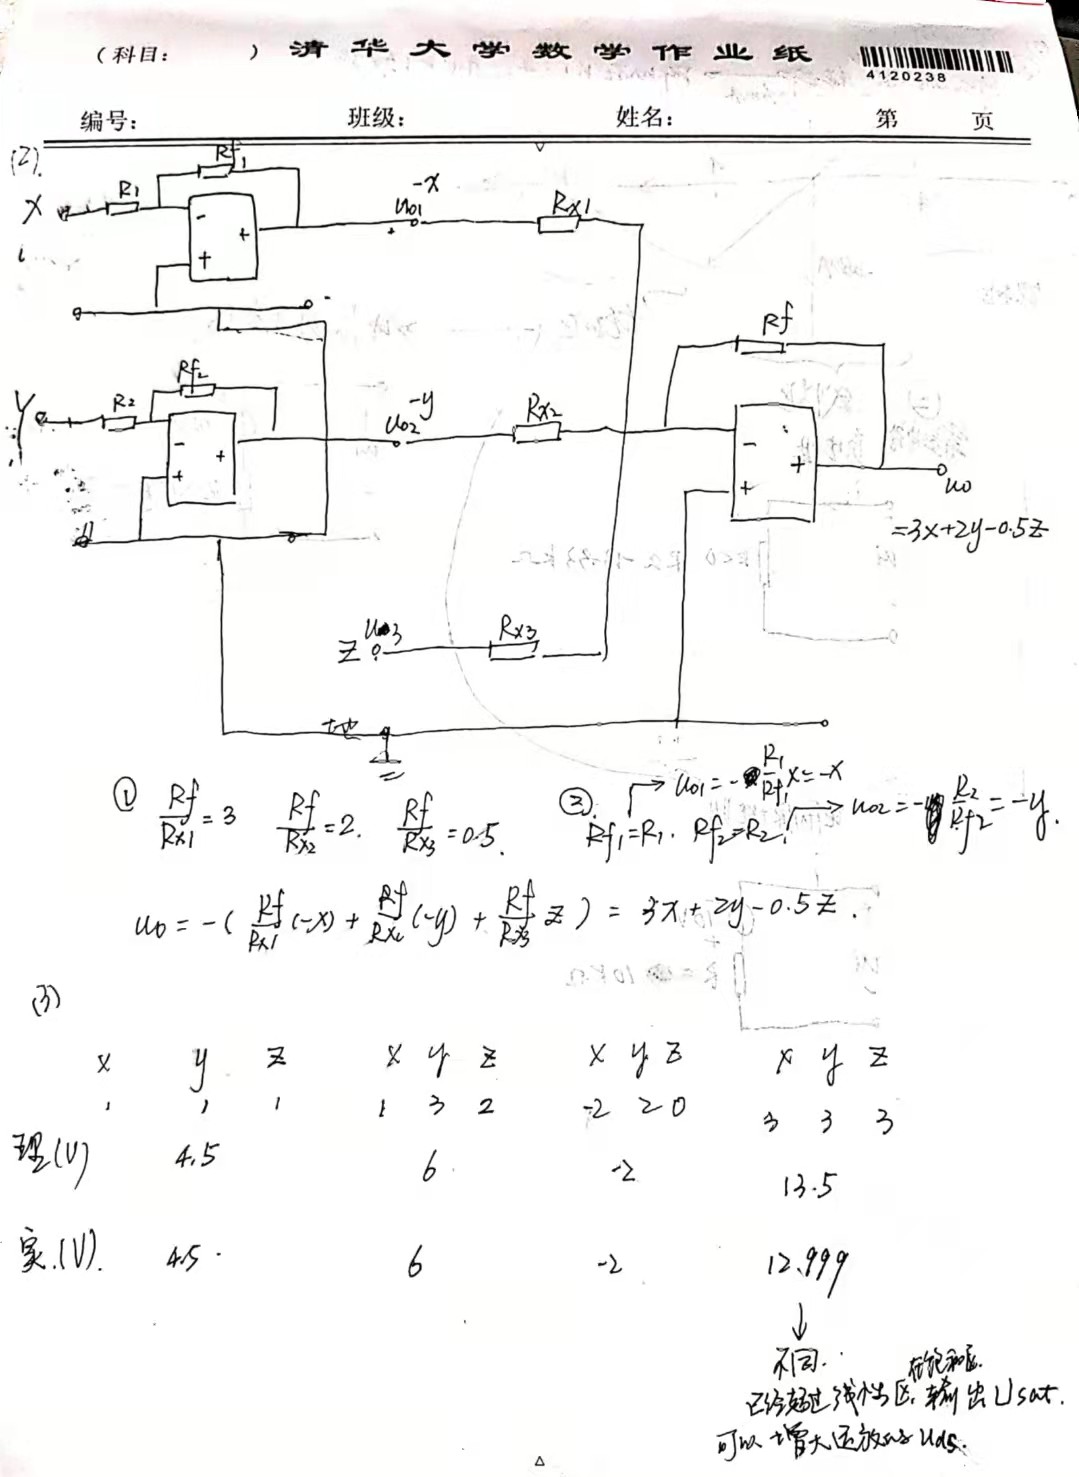 (科目: ) 清华大学数学作业纸
4120238
编号: 班级: 姓名: 第 页
(2).
Rf1
R1
X
-
+
+
-x
uo1
Rx1
Rf2
R2
Y
-
+
+
-y
uo2
Rx2
Rf
-
+
+
uo
=3x+2y-0.5z
Z
Rx3
地
① Rf/Rx1=3 Rf/Rx2=2. Rf/Rx3=0.5.
③. Rf1=R1. Rf2=R2.
→ uo1=-R1/Rf1 x=-x
→ uo2=-R2/Rf2=-y.
uo=-(Rf/Rx1(-x)+Rf/Rx2(-y)+Rf/Rx3 z)=3x+2y-0.5z.
(3)
x y z x y z x y z x y z
1 1 1 1 3 2 -2 2 0 3 3 3
理(V) 4.5 6 -2 13.5
实.(V). 4.5 6 -2 12.999
↓
不同.
在饱和区.
已经超过线性区, 输出Usat.
可以增大运放的Uds.